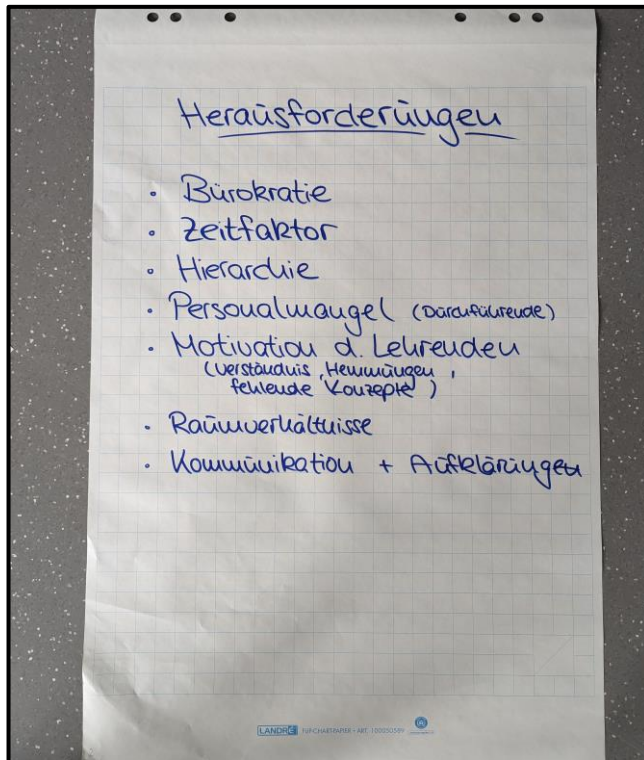 Herausforderungen
• Bürokratie
• Zeitfaktor
• Hierarchie
• Personalmangel (Durchführende)
• Motivation d. Lehrenden
(Verständnis, Hemmungen,
fehlende Konzepte)
• Raumverhältnisse
• Kommunikation + Aufklärungen
LANDRÉ FLIPCHARTPAPIER • ART. 100050589